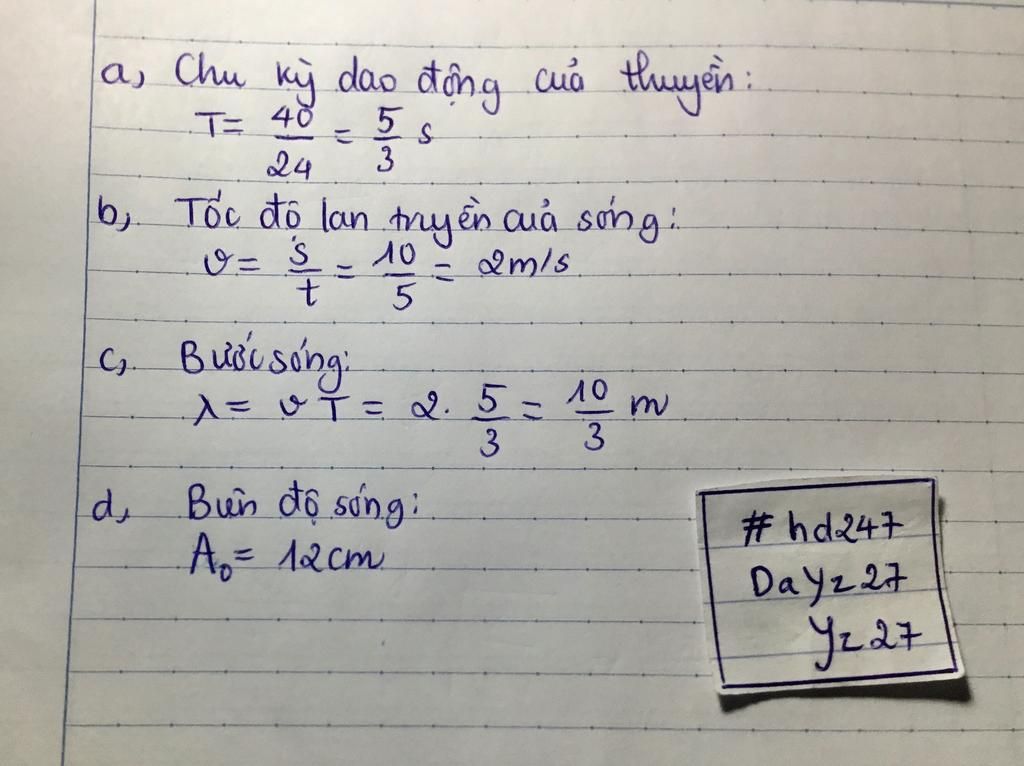 a, Chu kỳ dao động của thuyền:
T = 40/24 = 5/3 s
b, Tốc độ lan truyền của sóng:
v = s/t = 10/5 = 2m/s
c, Bước sóng:
λ = vT = 2. 5/3 = 10/3 m
d, Biên độ sóng:
A₀ = 12cm
#hd247
DaYz27
Yz27